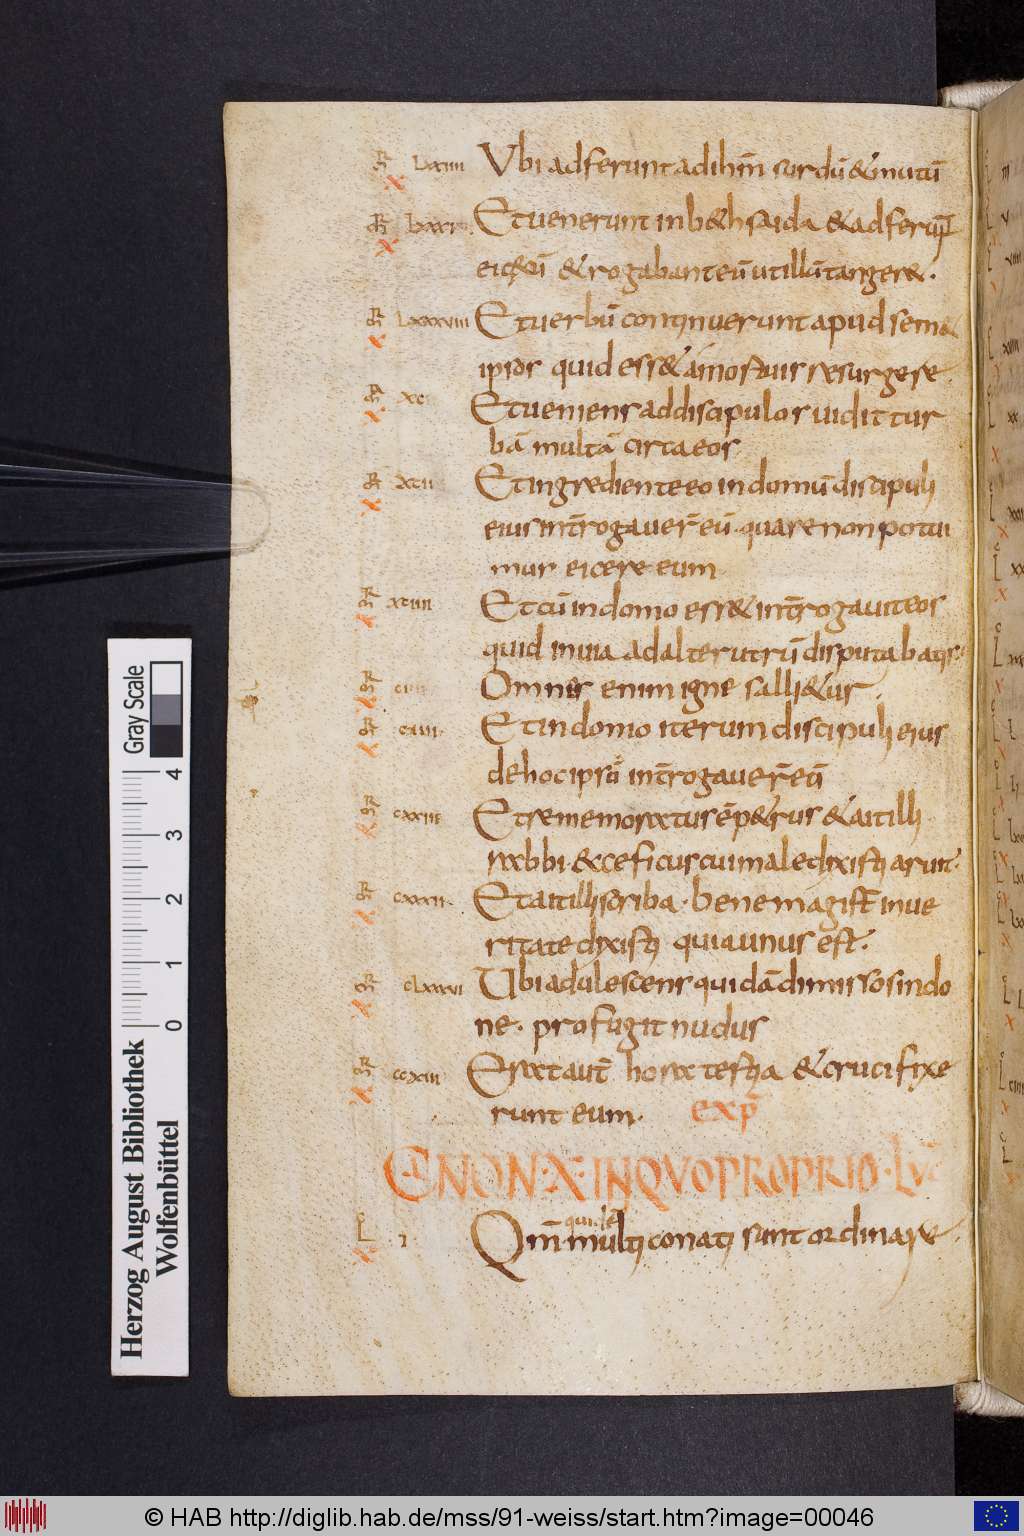 MR LXXIIII Vbi adferunt ad ihm̄ surdū & mutū
X
MR LXXVI. Et uenerunt in b&hsaida & adferunt
X
ei cecū & rogabant eū ut illū tanger&.
MR LXXXVIII Et uerbū continuerunt apud sem&
X
ipsos quid ess& a mortuis resurgere.
MR XC Et ueniens ad discipulos uidit tur
X
bā multā circa eos
MR XCII Et ingrediente eo in domū discipuli
X
eius int̄rogauer̄ eū. quare non potui
mus eicere eum
MR XCVIII Et cū in domo ess& int̄rogauit eos
X
quid in uia ad alterutrū disputabatis.
MR Omnis enim igne salli&ur.
X
MR Et in domo iterum discipuli eius
X
de hoc ipso int̄rogauer̄ eū
MR CXXIII Et rememoratus ē p&rus & ait illi
X
rabbi. ecce ficus cui maledixisti aruit.
MR CXXXII. Et ait illi scriba. bene magist̄ in ue
X
ritate dixisti quia unus est.
MR CLXXXVI Ubi adulescens quidā dimisso sindo
X
ne. profugit nudus
MR CCXIII Erat aut̄ hora tertia & crucifixe
X
runt eum. exp̄
CANON. X. IN QVO PROPRIO. LVC
qui. le
L I Qm̄ multi conati sunt ordinare.
X
Gray Scale
4
3
2
1
0
Herzog August Bibliothek
Wolfenbüttel
© HAB http://diglib.hab.de/mss/91-weiss/start.htm?image=00046